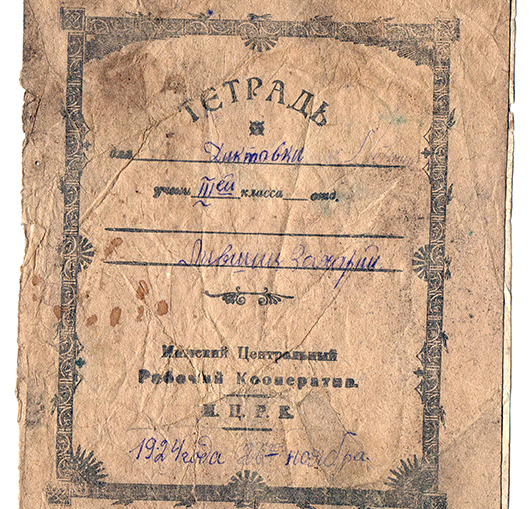 ТЕТРАДЬ
для Диктовки
учени III ей класса отд.
Захарий
Центральный
Рабочий Кооператив.
Ц.Р.К.
1924 года 26 ноября.